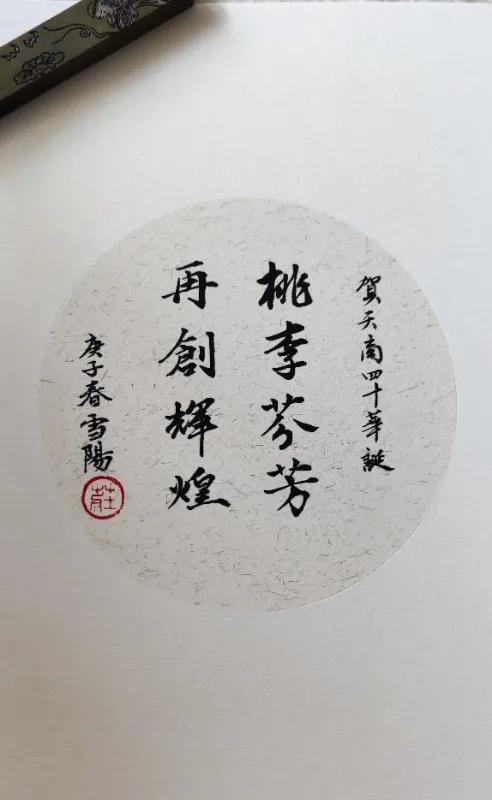 賀天商四十華誕
桃李芬芳
再創輝煌
庚子春雪陽
莊